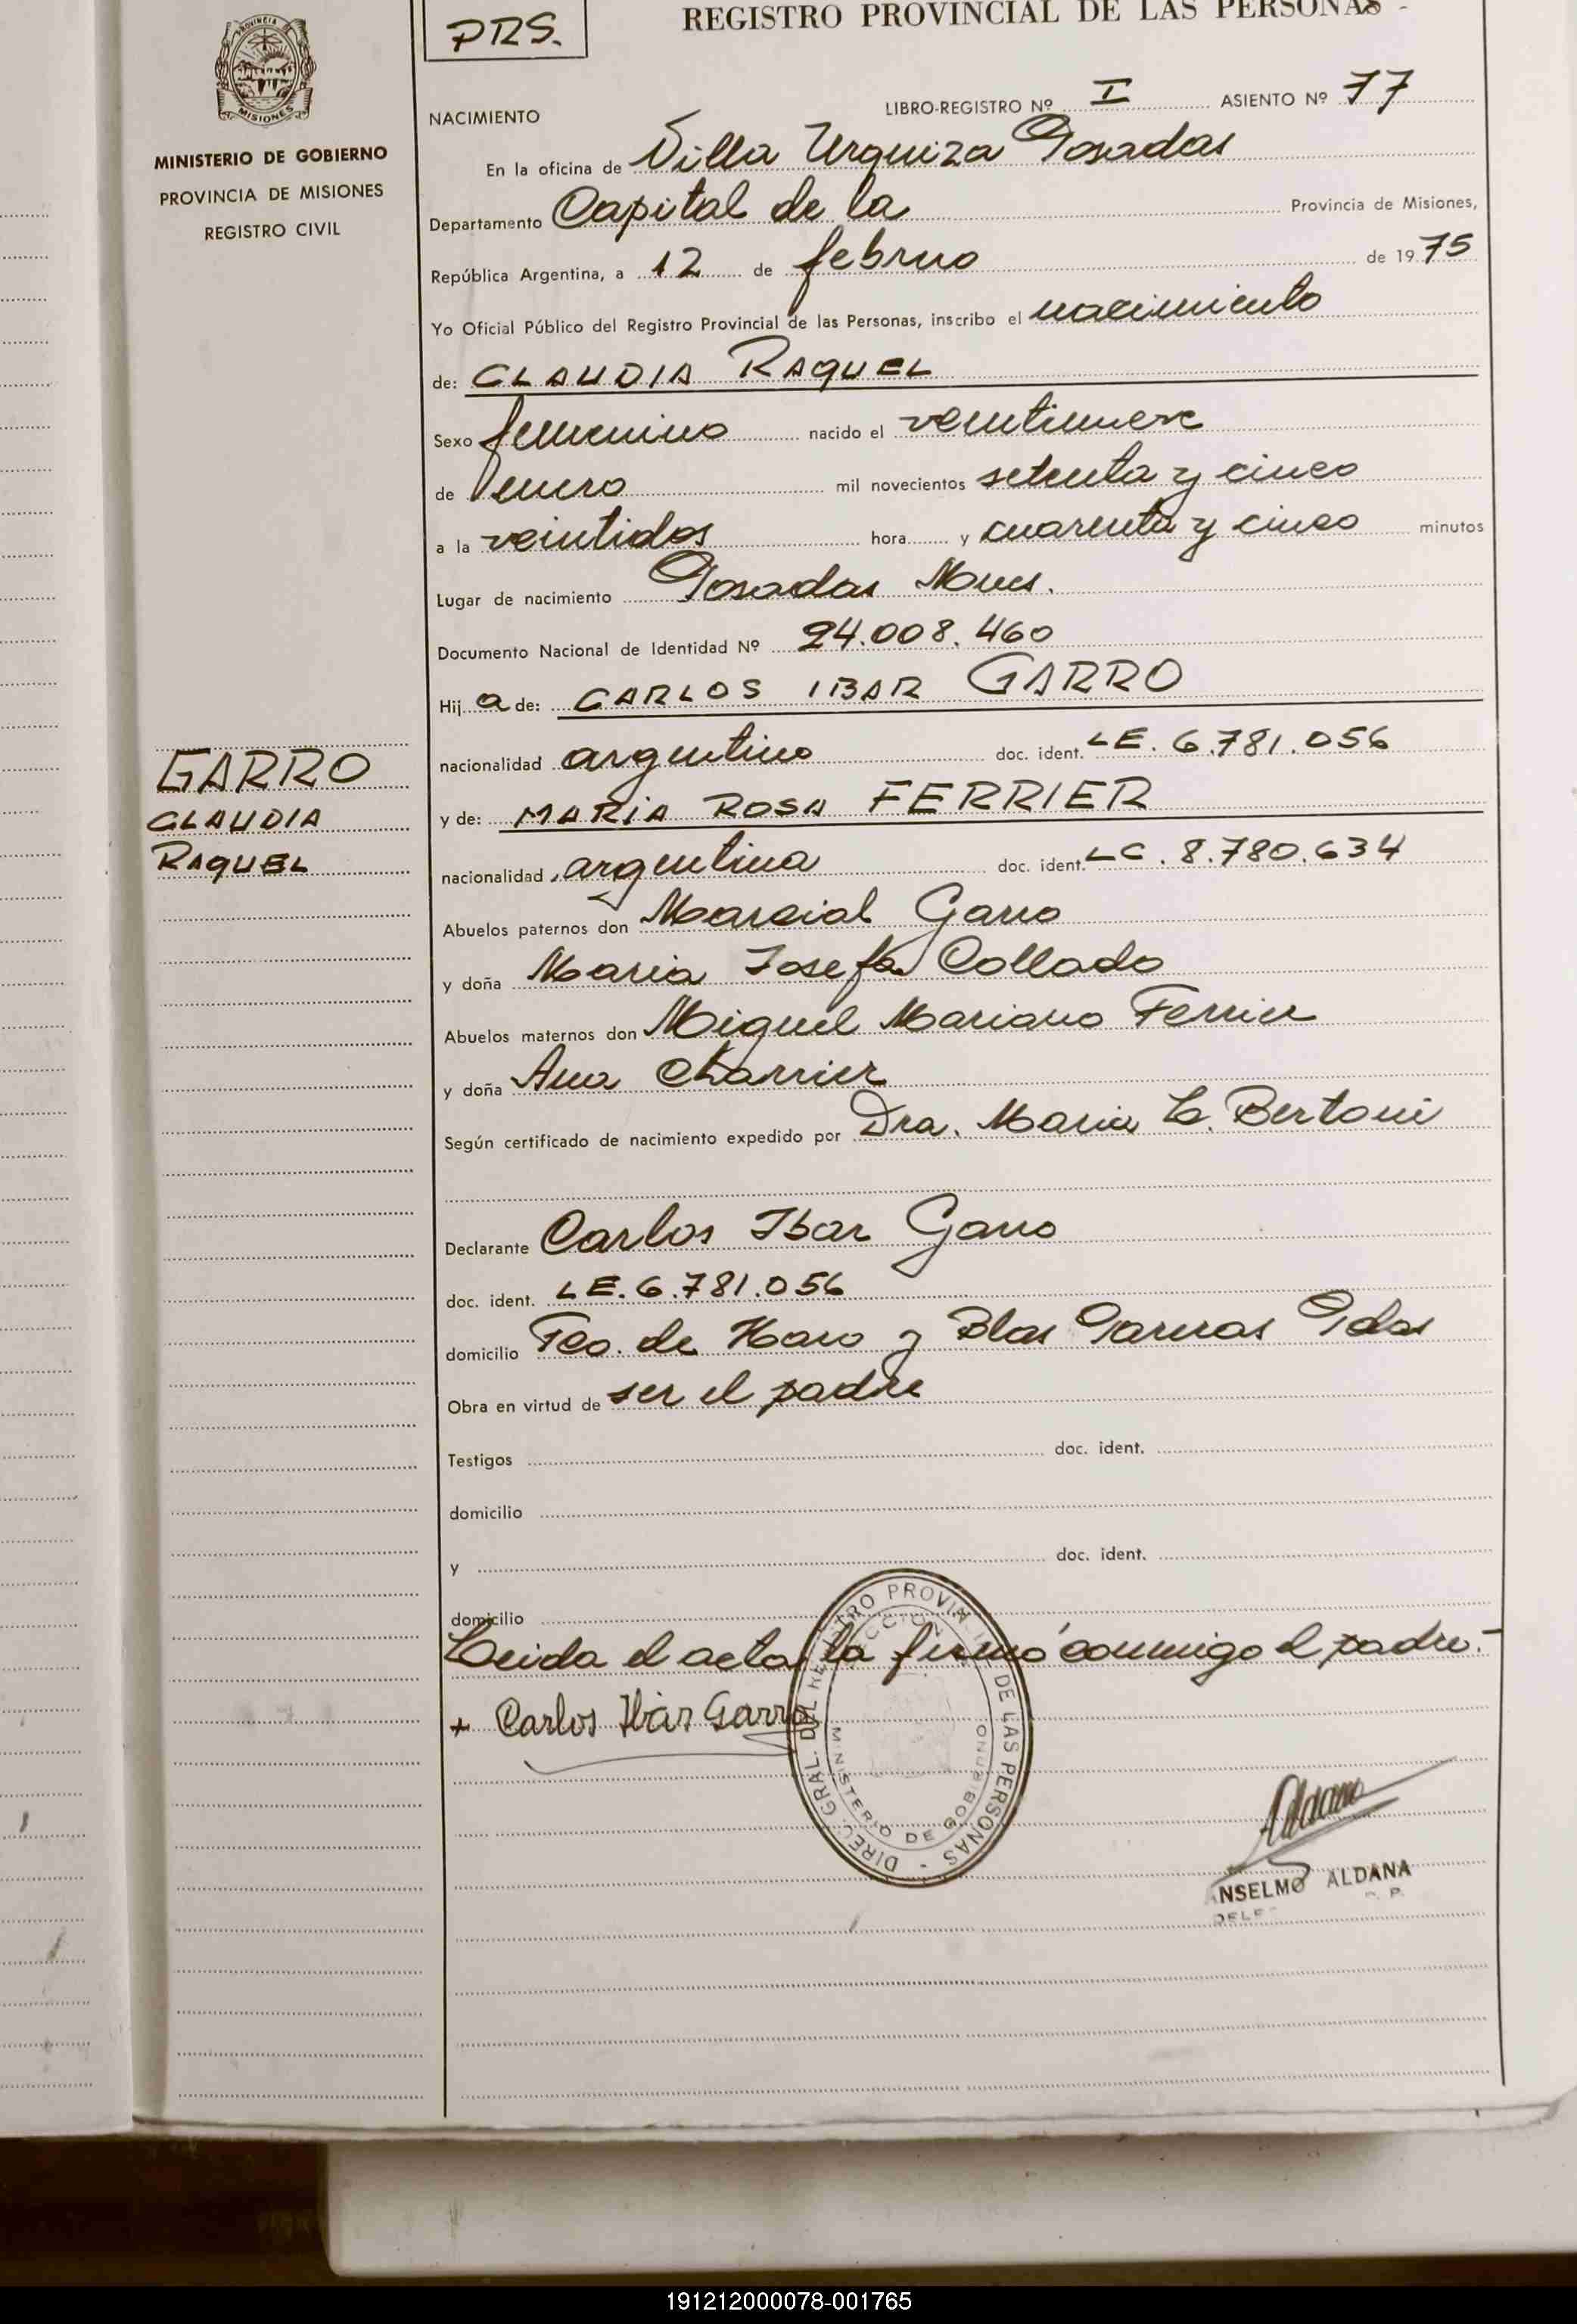 PRS.
REGISTRO PROVINCIAL DE LAS PERSONAS -
PROVINCIA
MISIONES
MINISTERIO DE GOBIERNO
PROVINCIA DE MISIONES
REGISTRO CIVIL
NACIMIENTO LIBRO-REGISTRO Nº I ASIENTO Nº 77
En la oficina de Villa Urquiza Posadas
Departamento Capital de la Provincia de Misiones,
República Argentina, a 12 de februo de 1975
Yo Oficial Público del Registro Provincial de las Personas, inscribo el nacimiento
de: CLAUDIA RAQUEL
Sexo femenino nacido el veintinueve
de enero mil novecientos setenta y cinco
a la veintidos hora y cuarenta y cinco minutos
Lugar de nacimiento Posadas Mnes.
Documento Nacional de Identidad Nº 24.008.460
Hij a de: CARLOS IBAR GARRO
nacionalidad argentino doc. ident. LE. 6.781.056
y de: MARIA ROSA FERRIER
nacionalidad argentina doc. ident. LC. 8.780.634
GARRO
CLAUDIA
RAQUEL
Abuelos paternos don Marcial Garro
y doña Maria Josefa Collado
Abuelos maternos don Miguel Mariano Ferrier
y doña Ana Charrier
Según certificado de nacimiento expedido por Dra. Maria L. Bertoni
Declarante Carlos Ibar Garro
doc. ident. LE. 6.781.056
domicilio Fco. de Haro y Blas Parera Pdas
Obra en virtud de ser el padre
Testigos doc. ident.
domicilio
y doc. ident.
domicilio
Leida el acta, la firmó conmigo el padre.-
+ Carlos Ibar Garro
DIREC. GRAL. DEL REGISTRO PROVINCIAL DE LAS PERSONAS -
MINISTERIO DE GOBIERNO
Aldana
ANSELMO ALDANA
191212000078-001765